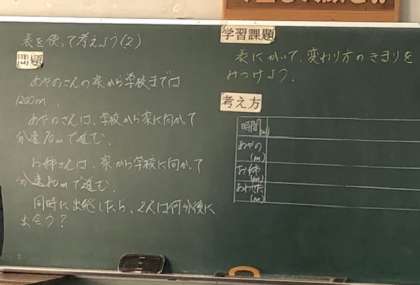 表を使って考えよう(2)
問題
あやのさんの家から学校までは
1200m。
あやのさんは、学校から家に向かって
分速70mで進む。
お姉さんは、家から学校に向かって
で進む。
同時に出発したら、2人は何分後に
出会う?
学習課題
表にかいて、変わり方のきまりを
みつけよう。
考え方
時間
あやの
(m)
お姉
(m)
あわせた
(m)